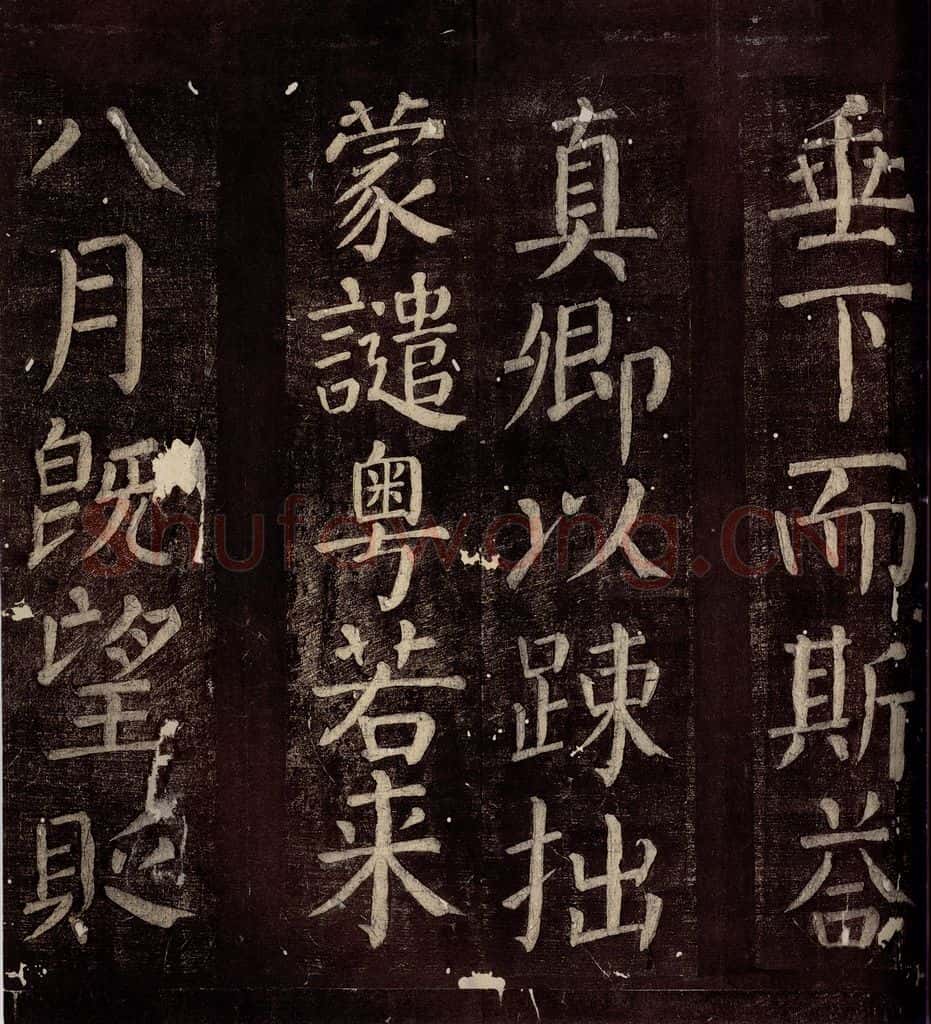 垂下而斯
真卿以踈拙
蒙譴粤若来
八月既望貶
shufawang.CN